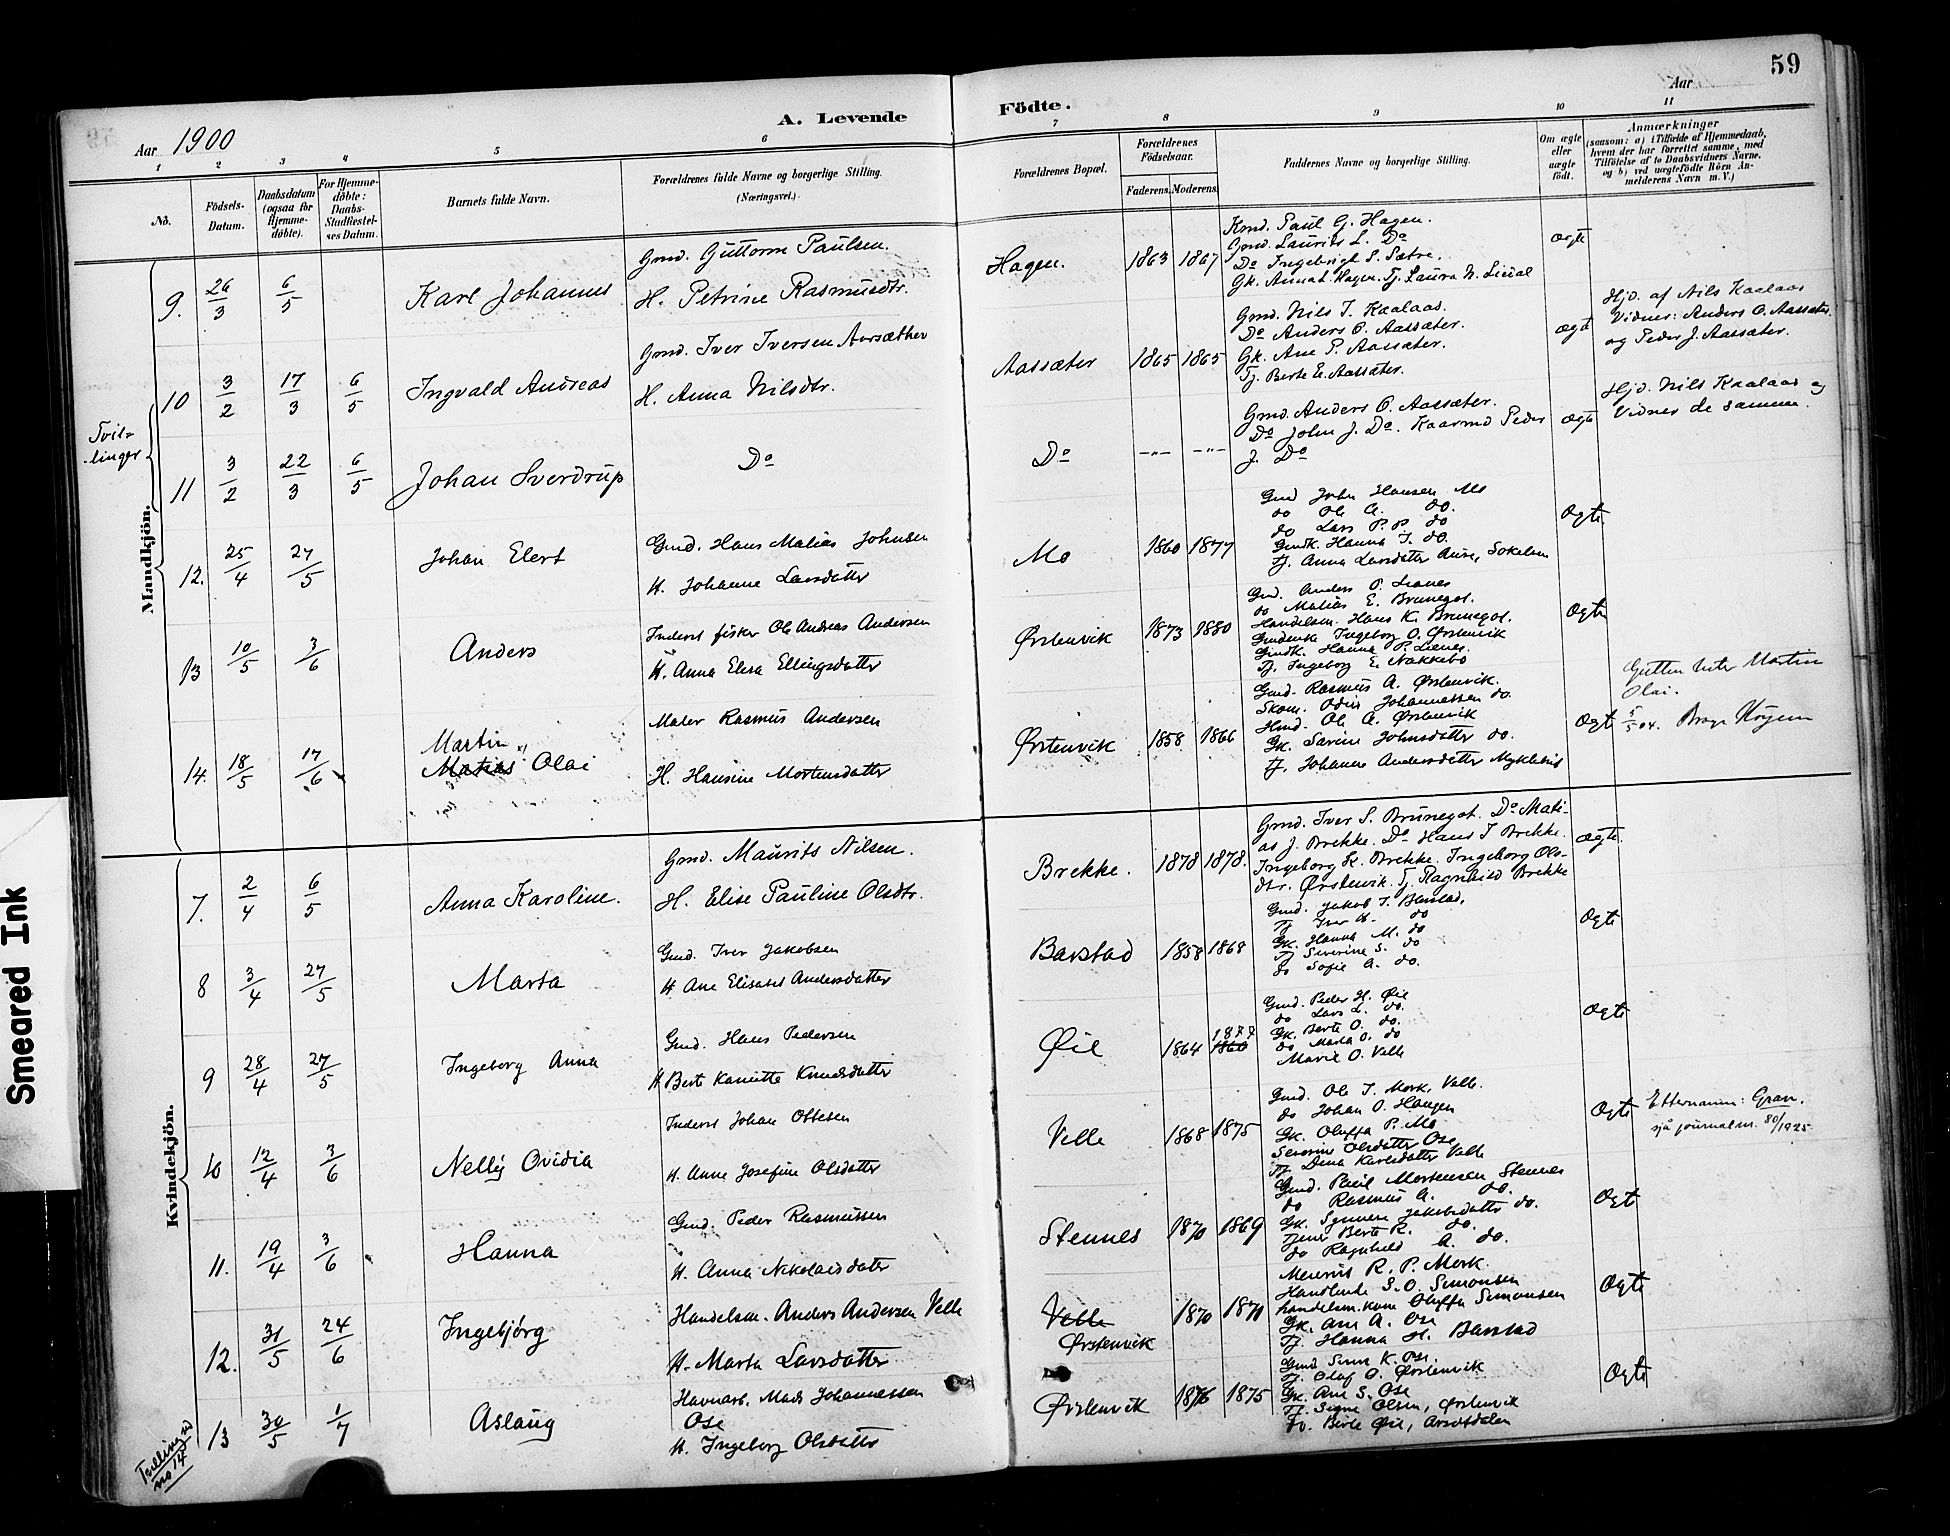 59
Aar 1900
A. Levende
Födte.
Aar
1 2 3 4 5 6 7 8 9 10 11
No.
Födsels-Datum.
Daabsdatum (ogsaa for Hjemme-döbte).
For Hjemme-döbte: Daabs-Stadfæstel-ses Datum.
Barnets fulde Navn.
Forældrenes fulde Navne og borgerlige Stilling. (Næringsvei.)
Forældrenes Bopæl.
Forældrenes Födselsaar.
Faderens. Moderens.
Faddernes Navne og borgerlige Stilling.
Om ægte eller uægte födt.
Anmærkninger
(saasom: a) i Tilfælde af Hjemmedaab, hvem der har forrettet samme, med Tilföielse af to Daabsvidners Navne, og b) ved uægtefödte Börn Anmelderens Navn m. V.)
Mandkjön.
9. 26/3 6/5 Karl Johannes
Gmd. Guttorm Paulsen.
H. Petrine Rasmusdtr.
Hagen. 1863 1867
Kmd. Paul G. Hagen.
Gmd. Laurits L. Do
Do Ingebrigt S. Sætre.
Gk. Anna L. Hagen. Tj. Laura N. Lieūal
ægte
Tvil-
-linger
10 3/2 17/3 6/5 Ingvald Andreas
Gmd. Iver Iversen Aarsæther
H. Anna Nilsdtr.
Aassæter 1865 1865
Gmd. Nils J. Kaalaas.
Do Anders O. Aassæter.
Gk. Ane P. Aassæter.
Tj. Berte E. Aassæter.
ægte
Hjd. af Nils Kaalaas
Vidner: Anders O. Aassæter.
og Peder J. Aassæter.
11 3/2 22/3 6/5 Johan Sverdrup
Do
Do -"- -"-
Gmd. Anders O. Aassæter.
Do John J. Do. Kaarmd Peder
J. Do
ægte
Hjd. Nils Kaalaas og
Vidner de samme.
12. 25/4 27/5 Johan Elert
Gmd. Hans Matias Johnsen
H. Johanne Larsdatter
Mo 1860 1877
Gmd John Hansen Mo
do Ole A. do.
do Lars P. P. do
Gmdk. Hanna J. do.
Tj. Anna Larsdatter Aure, Sokelven
Ægte
13 10/5 3/6 Anders
Inderst fisker Ole Andreas Andersen
H. Anna Elisa Ellingsdatter
Ørstenvik 1873 1880
Gmd. Anders P. Lianes
do Matias E. Brunegot.
Handelsm. Hans K. Brunegot.
Gmdenke Ingeborg O. Ørstenvik
Gmdk. Hanna P. Lianes.
Tj. Ingeborg E. Nakkebø
Ægte
14. 18/5 17/6 Martin
Matias Olai
Maler Rasmus Andersen
H. Hansine Mortensdatter
Ørstenvik 1858 1866
Gmd. Rasmus A. Ørstenvik.
Skom. Odin Johannessen do.
Hmd. Ole A. Ørstenvik
Gk. Sarine Johnsdatter do.
Tj. Johanne Andersdatter Myklebust
Ægte
Gutten heter Martin
Olai.
5/5 04.
Kvindekjön.
7. 2/4 6/5 Anna Karoline.
Gmd. Maurits Nilsen.
H. Elise Pauline Olsdtr.
Brekke. 1878 1878.
Gmd. Iver S. Brūnegot. Do Mati-
as J. Brekke. Do Hans J Brekke.
Ingeborg K. Brekke. Ingeborg Ols-
dtr. Ørstenvik. Tj. Ragnhild Brekke
ægte
8 3/4 27/5 Marta
Gmd. Iver Jakobsen
H Ane Elisabet Andersdatter
Barstad 1858 1868
Gmd. Jakob I. Barstad,
Tj Iver H. do
Gk. Hanna M. do
Tj Severine S. do
do Sofie A. do.
Ægte
9 28/4 27/5 Ingeborg Anna
Gmd. Hans Pedersen
H Berte Kanutte Knudsdatter
Øie 1864 1877
1860
Gmd. Peder H. Øie
do Lars L. do.
Gk. Berte O. do.
do Marta O. do
Marie O. Velle
Ægte
10 12/4 3/6 Nelly Ovidia
Inderst Johan Ottesen
H. Anne Josefine Olsdatter
Velle 1868 1875
Gmd. Ole T. Mork, Velle.
do Johan O. Haugen
Gk. Oluffa P. Mo
Severine Olsdatter Ose
Tj. Dina Karlsdatter Velle
Ægte
Etternamn: Gran.
sjå journalnr. 80/1925.
11. 19/4 3/6 Hanna
Gmd. Peder Rasmussen
H. Anna Nikolaisdatter
Stennes 1870 1869
Gmd. Paul Mortensen Stennes
do Rasmus A. do.
Gk. Synneve Jakobsdatter do.
Tjener Berte R. do.
do Ragnhild A. do.
Ægte
12. 31/5 24/6 Ingebjörg
Handelsm. Anders Andersen Velle
H. Marta Larsdatter
Velle
Ørstenvik 1870 1870
R. P. Mork.
Handlende S. O. Simonsen
handelsm. kone Oluffa Simonsen
Gk. Ane A. Ose
Tj. Hanna H. Barstad
Ægte
13 30/5 1/7 Aslaug
Havnarb. Mads Johannessen
Ose
H. Ingeborg Olsdatter
Ørstenvik 1876 1875
Gmd K. Ose
Tj. Olaf O. Ørstenvik
Gk. Ane S. Ose
Tj. Signe Olsen, Ørstenvik
do. Berte Øie, Aarsetdalen
Ægte
Tvilling
no 14
Smeared Ink